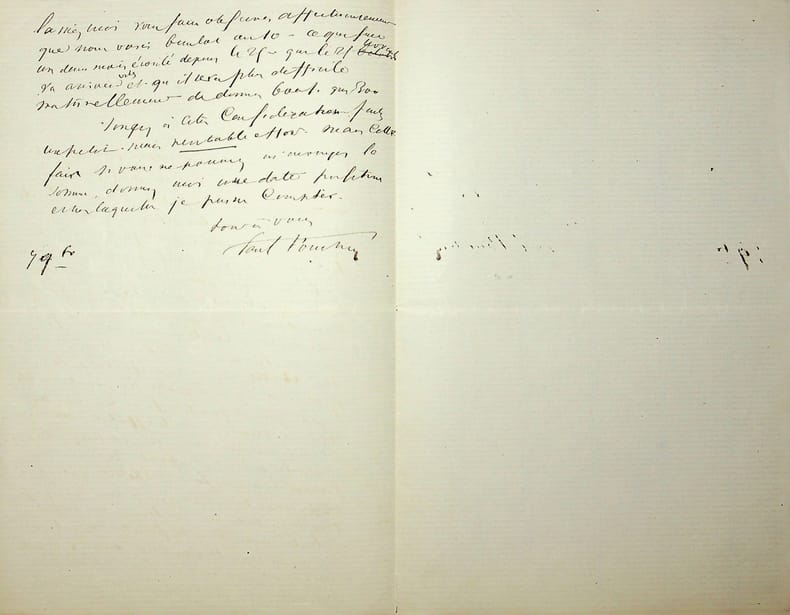 laissez moi vous faire observer affectueusement
que nous voici bientôt au 10 – ce qui fait
un demi mois écoulé depuis le 25 – que le 25
va arriver vite et qu'il sera plus difficile
naturellement de donner
Songez à cette considération faites
un petit mais véritable effort mais
faire si vous ne pouvez m'envoyer la
somme, donnez moi une date prochaine
et sur laquelle je puisse compter.
tout à vous
Paul Foucher
7 9bre